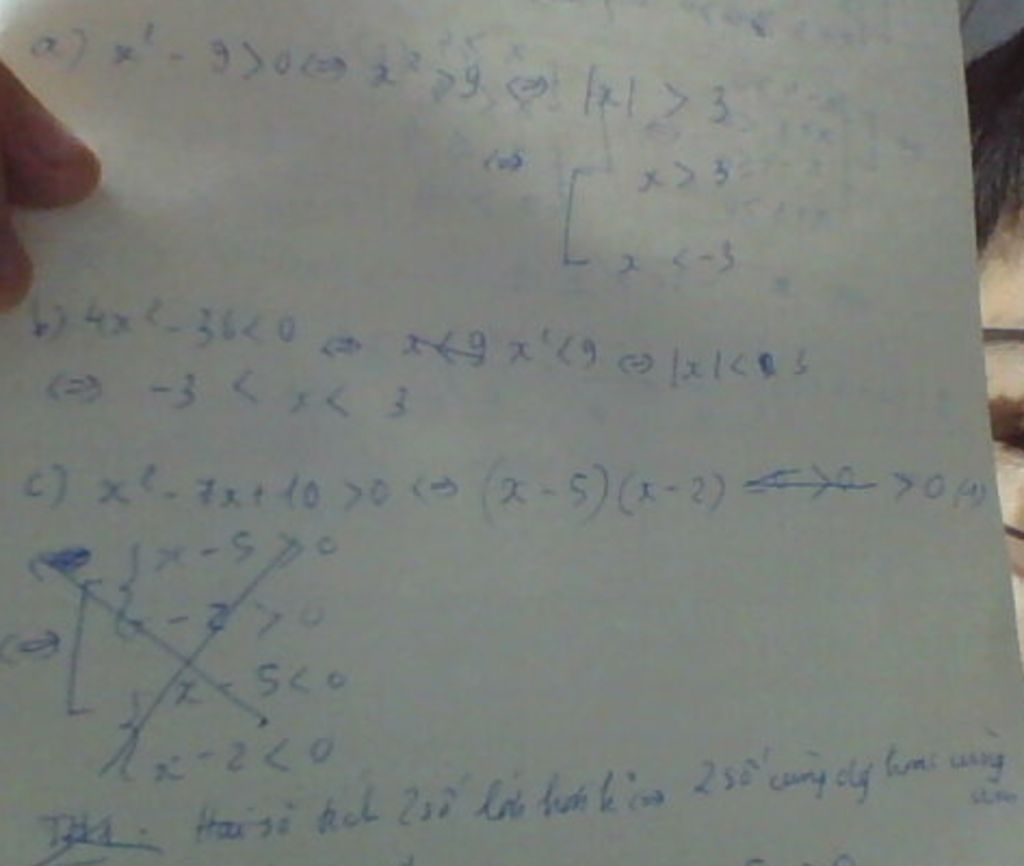 a) x² - 9 > 0 ⇔ x² > 9 ⇔ |x| > 3
⇔ [ x > 3
x < -3
b) 4x² - 36 < 0 ⇔ x < 9 x² < 9 ⇔ |x| < 3
⇔ -3 < x < 3
c) x² - 7x + 10 > 0 ⇔ (x - 5)(x - 2) > 0 (1)
{ x - 5 > 0
⇔ [ x - 2 > 0
{ x - 5 < 0
x - 2 < 0
TH1. Hai số tích 2 số lớn hơn ⇔ 2 số cùng hoặc cùng
âm